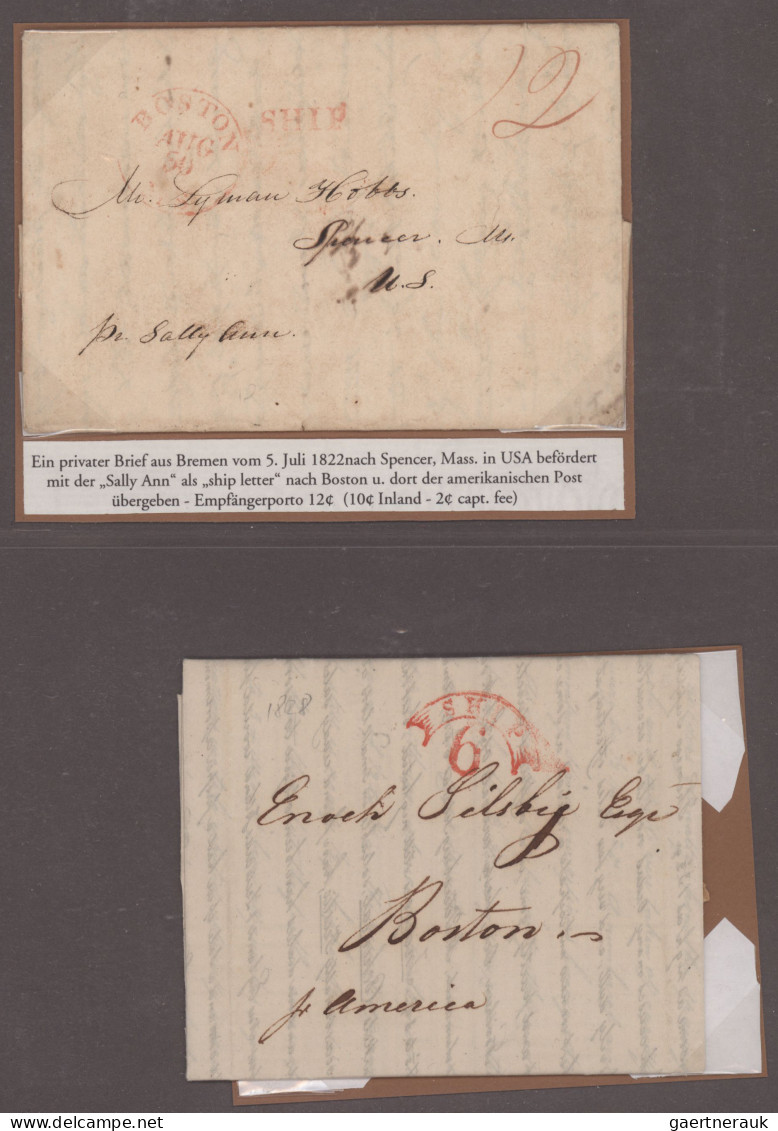 BOSTON
AUG
30
SHIP
12
Mr. Lyman Hobbs.
Spencer. Ms.
U.S.
pr. Sally Ann.
Ein privater Brief aus Bremen vom 5. Juli 1822nach Spencer, Mass. in USA befördert
mit der „Sally Ann“ als „ship letter“ nach Boston u. dort der amerikanischen Post
übergeben - Empfängerporto 12¢ (10¢ Inland - 2¢ capt. fee)
1828
SHIP
6
Enoch Silsby Esqr
Boston.
pr America
gaertnerauk